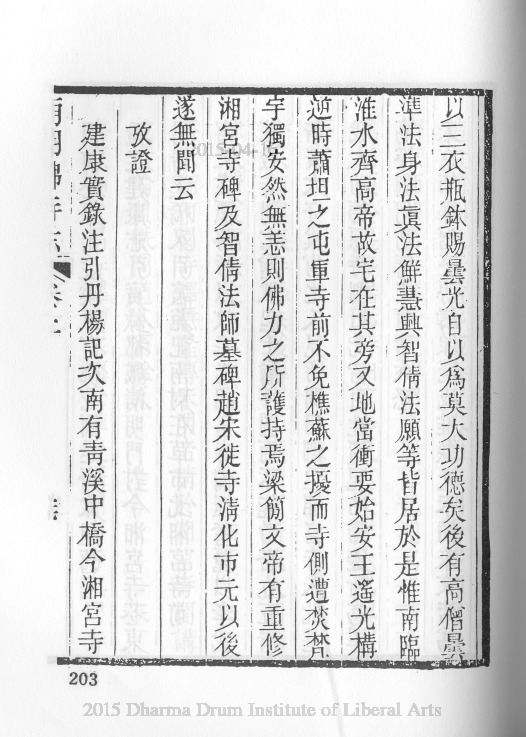 以三衣瓶鉢賜曇光自以爲莫大功德矣後有高僧曇
準法身法眞法鮮慧興智倩法願等皆居於是惟南臨
淮水齊高帝故宅在其旁又地當衝要始安王遙光構
逆時蕭坦之屯軍寺前不免樵蘇之擾而寺側遭焚梵
宇獨安然無恙則佛力之所護持焉梁簡文帝有重修
湘宮寺碑及智倩法師墓碑趙宋徙寺清化市元以後
遂無聞云
攷證
建康實錄注引丹楊記次南有靑溪中橋今湘宮寺
南朝佛寺志 卷上
203
2015 Dharma Drum Institute of Liberal Arts